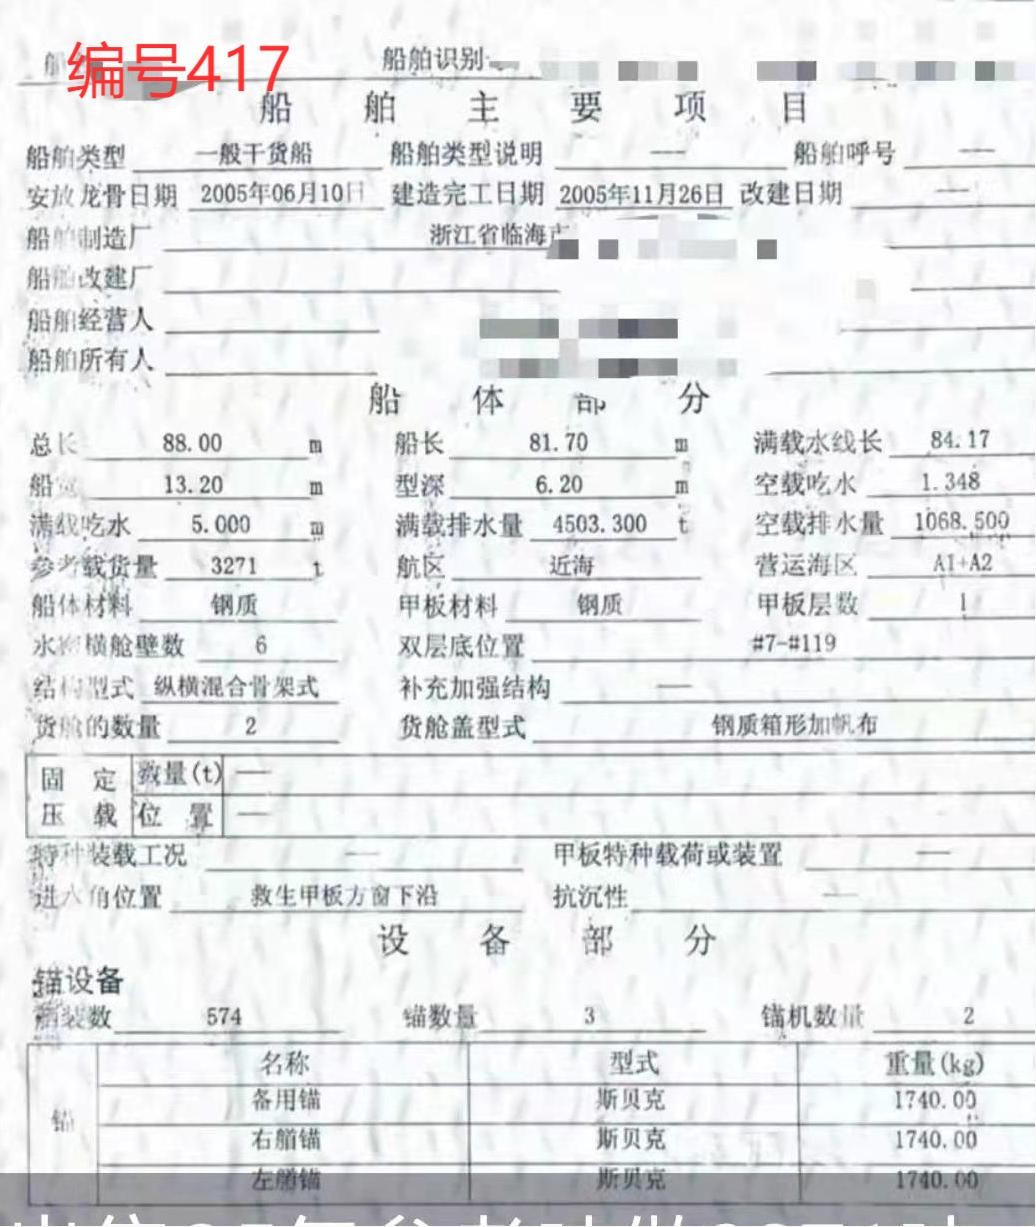 编号417
船舶识别
船舶主要项目
船舶类型 一般干货船 船舶类型说明 — 船舶呼号 —
安放龙骨日期 2005年06月10日 建造完工日期 2005年11月26日 改建日期 —
船舶制造厂 浙江省临海市
船舶改建厂
船舶经营人
船舶所有人
船体部分
总长 88.00 m 船长 81.70 m 满载水线长 84.17
船宽 13.20 m 型深 6.20 m 空载吃水 1.348
满载吃水 5.000 m 满载排水量 4503.300 t 空载排水量 1068.500
参考载货量 3271 t 航区 近海 营运海区 A1+A2
船体材料 钢质 甲板材料 钢质 甲板层数 1
水密横舱壁数 6 双层底位置 #7-#119
结构型式 纵横混合骨架式 补充加强结构 —
货舱的数量 2 货舱盖型式 钢质箱形加帆布
固定 数量(t) —
压载 位置 —
特种装载工况 — 甲板特种载荷或装置 —
进水角位置 救生甲板方窗下沿 抗沉性 —
设备部分
锚设备
舾装数 574 锚数量 3 锚机数量 2
名称 型式 重量(kg)
锚 备用锚 斯贝克 1740.00
右艏锚 斯贝克 1740.00
左艏锚 斯贝克 1740.00